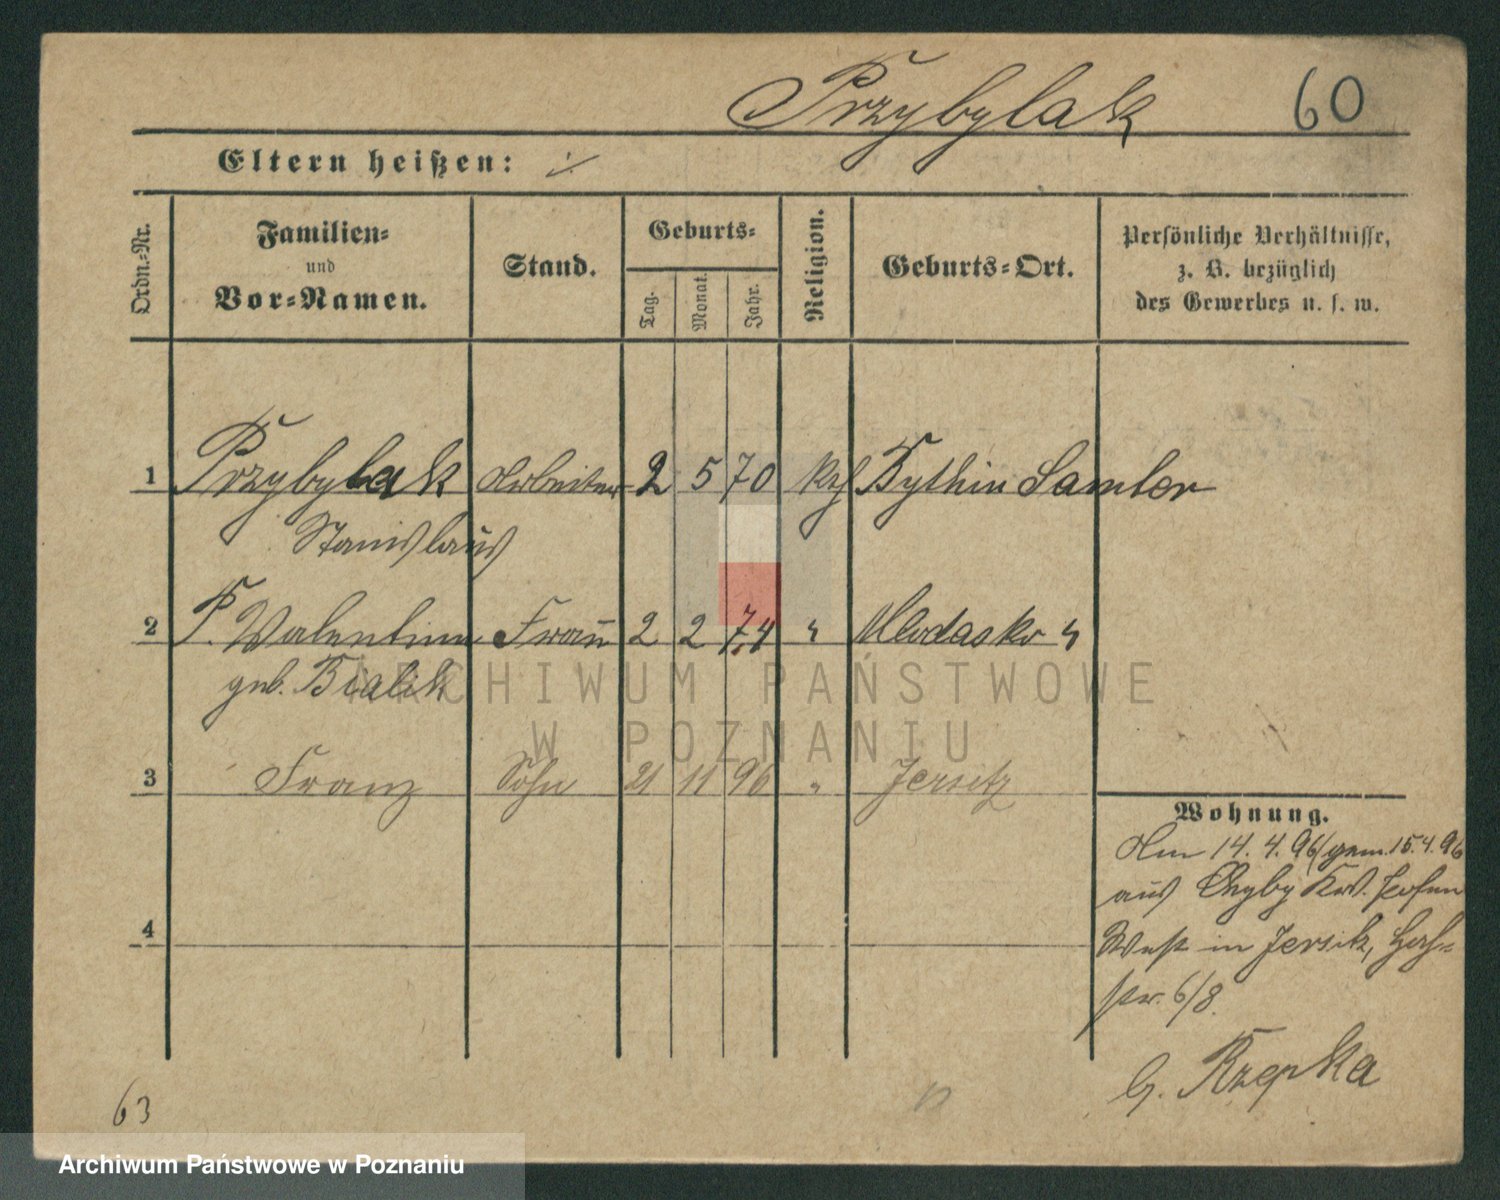 Przybylak 60
Eltern heißen: ·/.
Ordn.-Nr.
Familien- und Vor-Namen.
Stand.
Geburts-
Tag. Monat. Jahr.
Religion.
Geburts-Ort.
Persönliche Verhältnisse,
z. B. bezüglich
des Gewerbes u. s. w.
1 Przybylak Arbeiter 2 5 70 kth Bythin Samter
Stanislaus
2 P. Valentina Frau 2 2 74 " Mlodasko "
geb. Bialik
ARCHIWUM PAŃSTWOWE
W POZNANIU
3 Franz Sohn 21 11 96 " Jersitz
Wohnung.
Am 14. 4. 96/gem. 15.4.96
aus Chyby Krs. Posen
4
West in Jersitz,
str. 6/8.
b. Rzepka
63
Archiwum Państwowe w Poznaniu